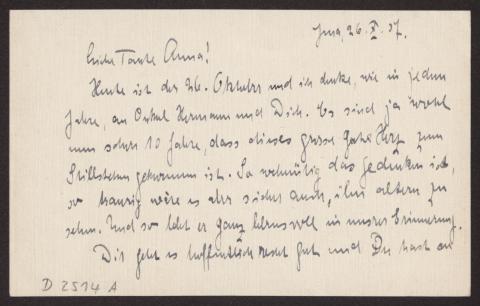 Jena, 26. X. 37.
Liebe Tante Anna!
Heute ist der 26. Oktober und ich denke, wie in jedem
Jahre, an Onkel Hermann und Dich. Es sind ja wohl
nun schon 10 Jahre, dass dieses grosse gute Herz zum
Stillstehen gekommen ist. So wehmütig das Gedenken ist,
so traurig wäre es aber sicher auch, ihn altern zu
sehen. Und so lebt er ganz lebensvoll in unserer Erinnerung.
Dir geht es hoffentlich recht gut und Du hast an
D 2514 A